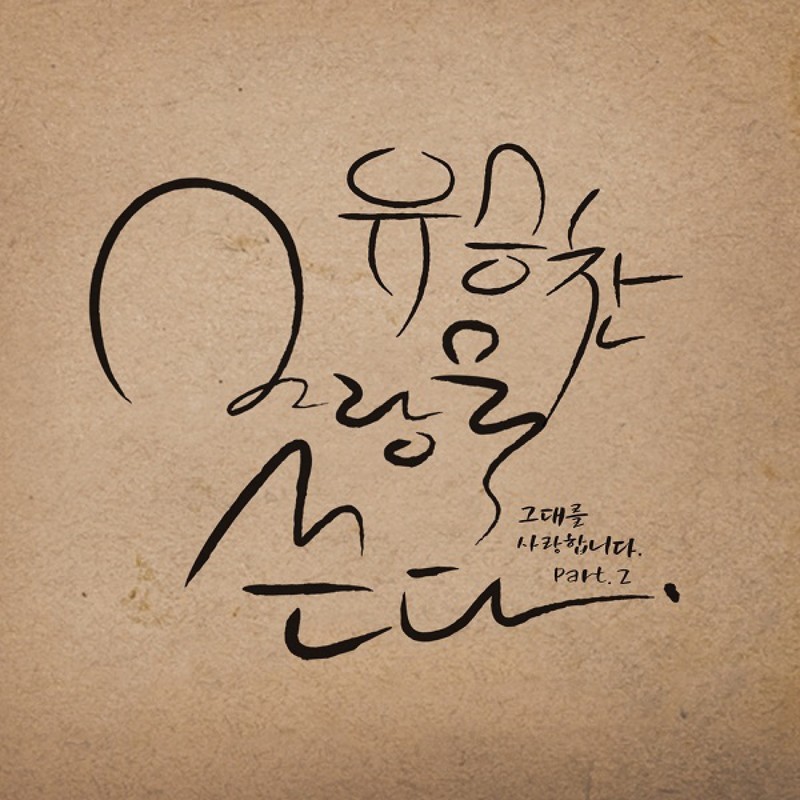 유승찬
사랑을
쓴다.
그대를
사랑합니다.
Part.2